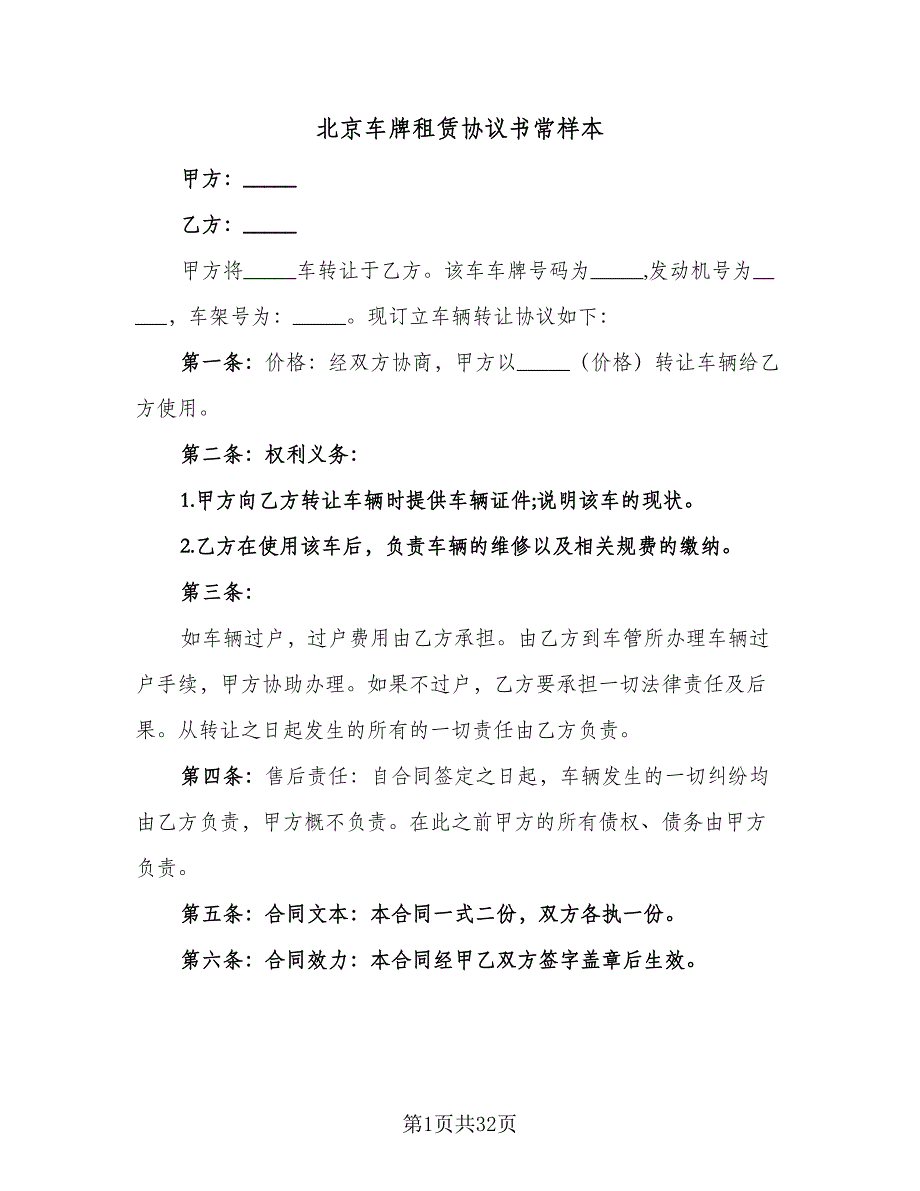 北京车牌租赁协议书常样本
甲方：_____
乙方：_____
甲方将_____车转让于乙方。该车车牌号码为_____,发动机号为__
___，车架号为：_____。现订立车辆转让协议如下：
第一条：价格：经双方协商，甲方以_____（价格）转让车辆给乙
方使用。
第二条：权利义务：
1.甲方向乙方转让车辆时提供车辆证件;说明该车的现状。
2.乙方在使用该车后，负责车辆的维修以及相关规费的缴纳。
第三条：
如车辆过户，过户费用由乙方承担。由乙方到车管所办理车辆过
户手续，甲方协助办理。如果不过户，乙方要承担一切法律责任及后
果。从转让之日起发生的所有的一切责任由乙方负责。
第四条：售后责任：自合同签定之日起，车辆发生的一切纠纷均
由乙方负责，甲方概不负责。在此之前甲方的所有债权、债务由甲方
负责。
第五条：合同文本：本合同一式二份，双方各执一份。
第六条：合同效力：本合同经甲乙双方签字盖章后生效。
第1页共32页